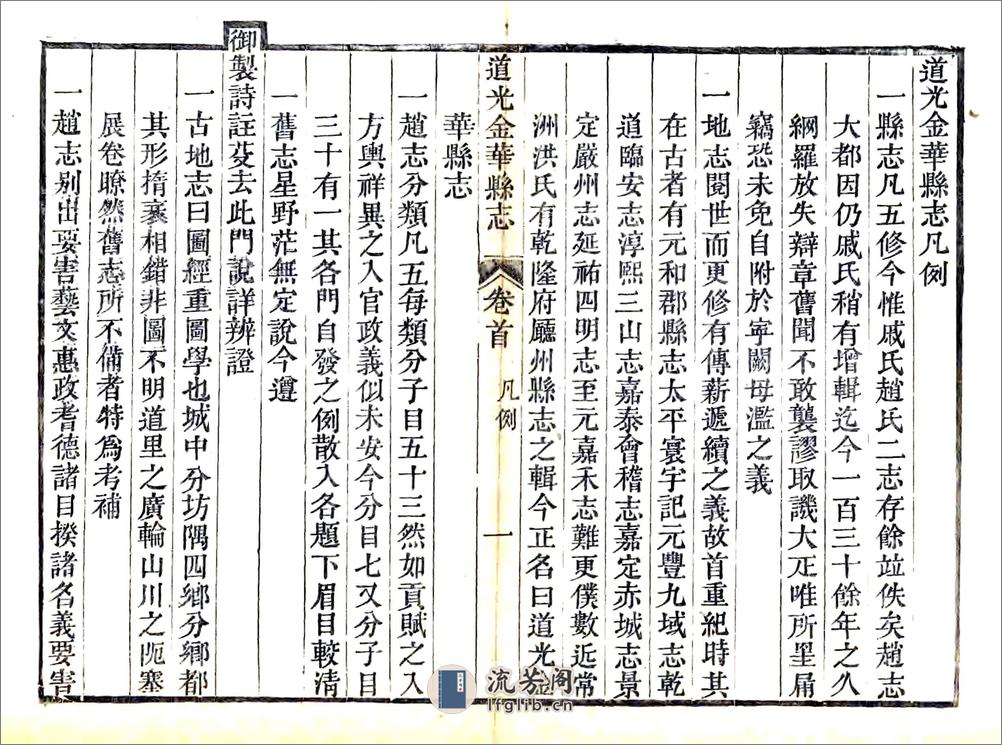 道光金華縣志凡例
一縣志凡五修今惟戚氏趙氏二志存餘竝佚矣趙志
大都因仍戚氏稍有增輯迄今一百三十餘年之久
網羅放失辯章舊聞不敢襲謬取譏大疋唯所罣屚
竊恐未免自附於寧闕毋濫之義
一地志閱世而更修有傳薪遞續之義故首重紀時其
在古者有元和郡縣志太平寰宇記元豐九域志乾
道臨安志淳熙三山志嘉泰會稽志嘉定赤城志景
定嚴州志延祐四明志至元嘉禾志難更僕數近常
洲洪氏有乾隆府廳州縣志之輯今正名曰道光金
道光金華縣志 卷首 凡例 一
華縣志
一趙志分類凡五每類分子目五十三然如貢賦之入
方輿祥異之入官政義似未安今分目七又分子目
三十有一其各門自發之例散入各題下眉目較清
一舊志星野茫無定說今遵
御製詩註芟去此門說詳辨證
一古地志曰圖經重圖學也城中分坊隅四鄉分鄉都
其形橢袤相錯非圖不明道里之廣輪山川之阨塞
展卷瞭然舊志所不備者特爲考補
一趙志别出要害藝文惠政耆德諸目揆諸名義要害
流芳阁
lfglib.cn